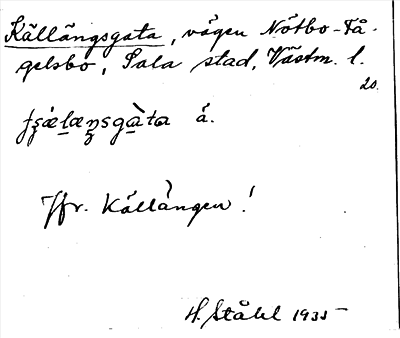 Källängsgata, vägen Nötbo-Få-
gelsbo, Sala stad, Västm. l.
20.
å.
Jfr. Källängen!
H. Ståhl 1935